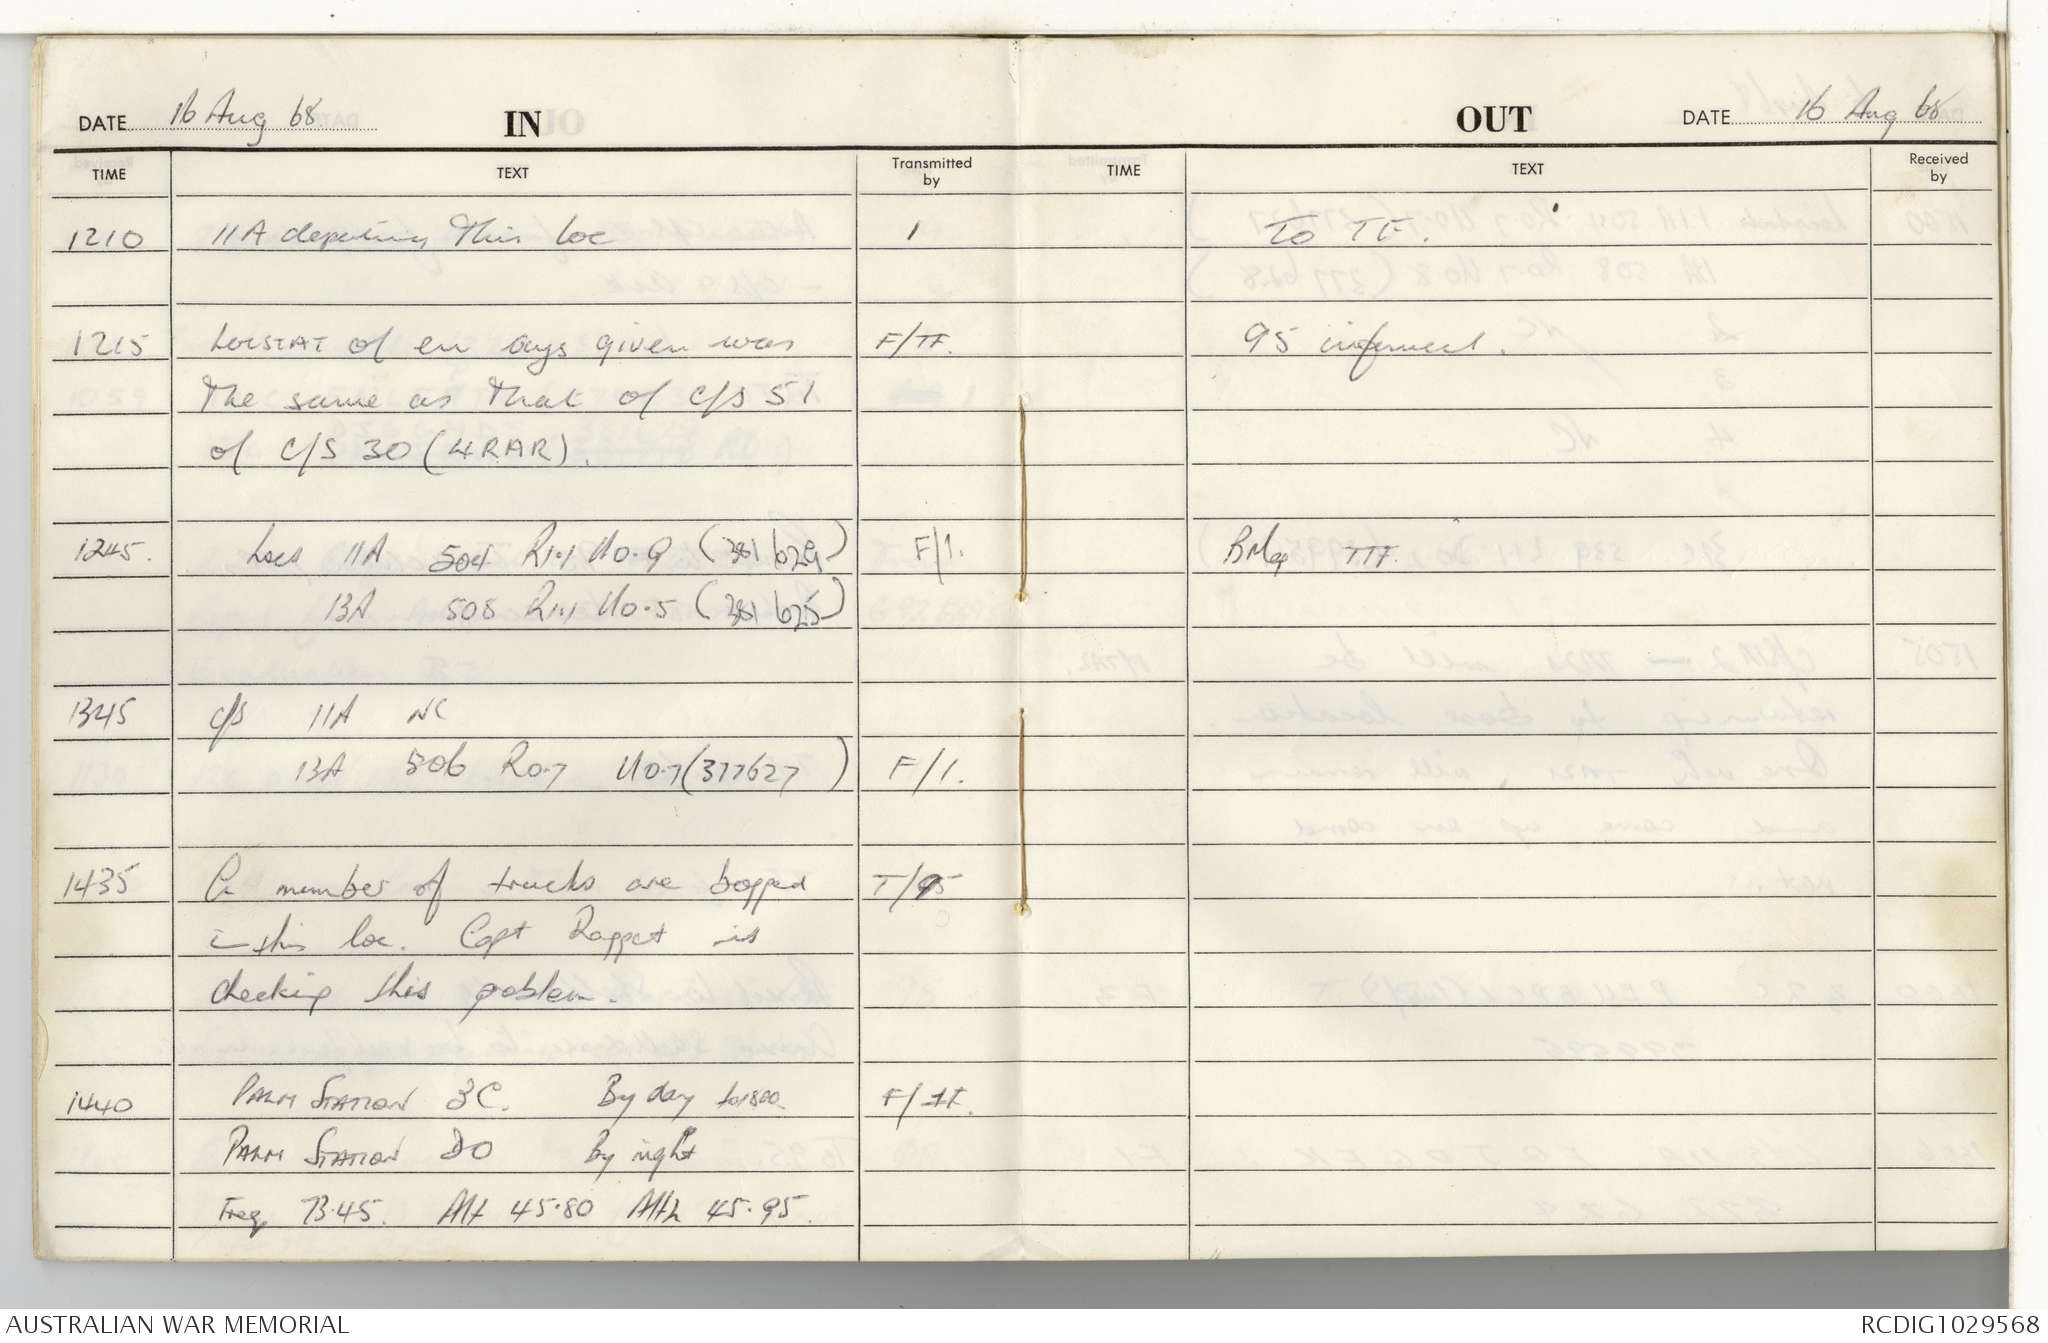 DATE 16 Aug 68 IN
TIME TEXT Transmitted by
1210 11A departing this loc 1
1215 LOCSTAT of en guys given was F/TF.
the same as that of C/S 51
of C/S 30 (4RAR).
1245. Locs 11A 504 R1.1 U0.9 (381 629) F/1.
13A 505 R1.1 U0.5 (381 625)
1345 C/S 11A NC
13A 506 R0.7 U0.7 (377627) F/1.
1435 A number of trucks are bogged T/95
in this loc. Capt Raggat is
checking this problem.
1440 PALM STATION 3C. By day F/TF.
PALM STATION 20 By night
Freq 73.45. Alt 45.80 Alt2 45.95.
OUT DATE 16 Aug 68
TIME TEXT Received by
To TF.
95 informed.
TTF.
AUSTRALIAN WAR MEMORIAL RCDIG1029568